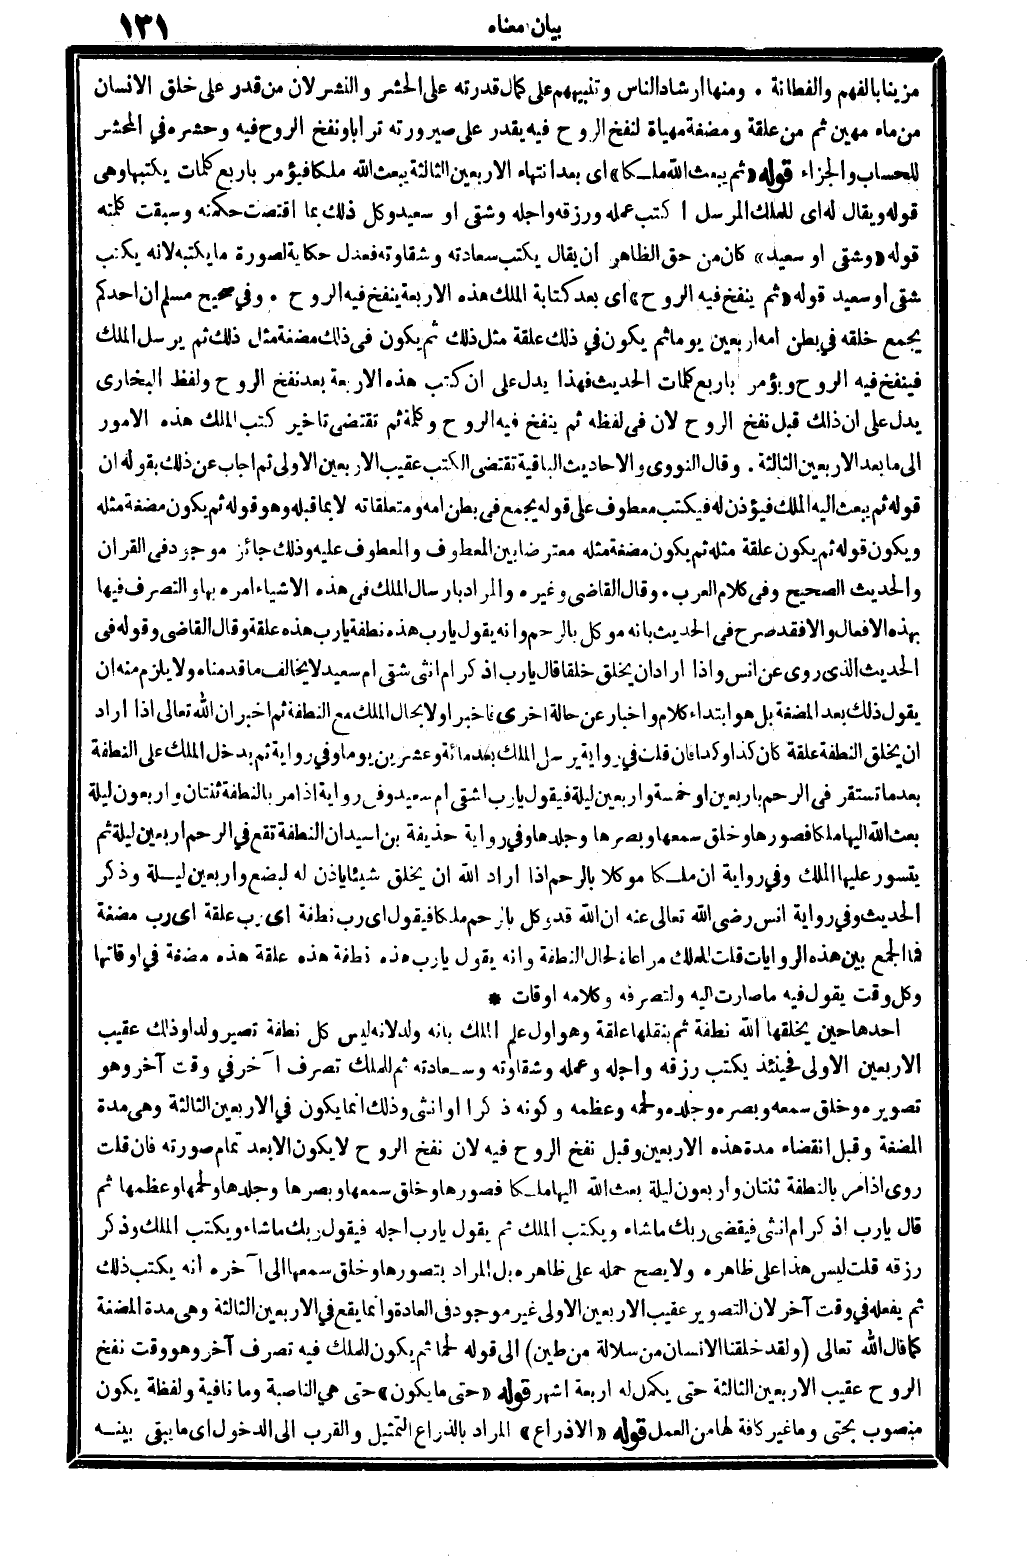 بيان معناه ١٣١
مزينا بالفهم والفطانة . ومنها ارشاد الناس وتنبيههم على كمال قدرته على الحشر والنشر لان من قدر على خلق الانسان
من ماء مهين ثم من علقة ومضغة مهياة لنفخ الروح فيه يقدر على صيرورته ترابا ونفخ الروح فيه وحشره في المحشر
للحساب والجزاء قوله «ثم يبعث الله ملكا» اى بعد انتهاء الاربعين الثالثة يبعث الله ملكا فيؤمر باربع كلمات يكتبها وهى
قوله ويقال له اى للملك المرسل اكتب عمله ورزقه واجله وشقى او سعيد وكل ذلك بما اقتضت حكمته وسبقت كلمته
قوله «وشقى او سعيد» كان من حق الظاهر ان يقال يكتب سعادته وشقاوته فعدل حكاية لصورة ما يكتبه لانه يكتب
شقى او سعيد قوله «ثم ينفخ فيه الروح» اى بعد كتابة الملك هذه الاربعة ينفخ فيه الروح . وفي صحيح مسلم ان احدكم
يجمع خلقه في بطن امه اربعين يوما ثم يكون في ذلك علقة مثل ذلك ثم يكون فى ذلك مضغة مثل ذلك ثم يرسل الملك
فينفخ فيه الروح ويؤمر باربع كلمات الحديث فهذا يدل على ان كتب هذه الاربعة بعد نفخ الروح ولفظ البخارى
يدل على ان ذلك قبل نفخ الروح لان فى لفظه ثم ينفخ فيه الروح وكلمة ثم تقتضى تاخير كتب الملك هذه الامور
الى ما بعد الاربعين الثالثة . وقال النووى والاحاديث الباقية تقتضى الكتب عقيب الاربعين الاولى ثم اجاب عن ذلك بقوله ان
قوله ثم يبعث اليه الملك فيؤذن له فيكتب معطوف على قوله يجمع فى بطن امه ومتعلقاته لا بما قبله وهو قوله ثم يكون مضغة مثله
ويكون قوله ثم يكون علقة مثله ثم يكون مضغة مثله معترضا بين المعطوف والمعطوف عليه وذلك جائز موجود فى القران
والحديث الصحيح وفى كلام العرب . وقال القاضى وغيره والمراد بارسال الملك فى هذه الاشياء امره بها والتصرف فيها
بهذه الافعال والا فقد صرح فى الحديث بانه موكل بالرحم وانه يقول يارب هذه نطفة يارب هذه علقة وقال القاضى وقوله فى
الحديث الذى روى عن انس واذا اراد ان يخلق خلقا قال يارب اذكر ام انثى شقى ام سعيد لا يخالف ما قدمناه ولا يلزم منه ان
يقول ذلك بعد المضغة بل هو ابتداء كلام واخبار عن حالة اخرى فاخبر اولا بحال الملك مع النطفة ثم اخبر ان الله تعالى اذا اراد
ان يخلق النطفة علقة كان كذا وكذا فان قلت فى رواية يرسل الملك بعد مائة وعشرين يوما وفي رواية ثم يدخل الملك على النطفة
بعد ما تستقر فى الرحم باربعين او خمسة واربعين ليلة فيقول يارب اشقى ام سعيد وفى رواية اذا مر بالنطفة ثنتان واربعون ليلة
بعث الله اليها ملكا فصورها وخلق سمعها وبصرها وجلدها وفي رواية حذيفة بن اسيد ان النطفة تقع في الرحم اربعين ليلة ثم
يتسور عليها الملك وفي رواية ان ملكا موكلا بالرحم اذا اراد الله ان يخلق شيئا ياذن له لبضع واربعين ليلة وذكر
الحديث وفي رواية انس رضى الله تعالى عنه ان الله قد وكل بالرحم ملكا فيقول اى رب نطفة اى رب علقة اى رب مضغة
فما الجمع بين هذه الروايات قلت للملك مراعاة لحال النطفة وانه يقول يارب هذه نطفة هذه علقة هذه مضغة في اوقاتها
وكل وقت يقول فيه ما صارت اليه ولتصرفه وكلامه اوقات *
احدها حين يخلقها الله نطفة ثم ينقلها علقة وهو اول علم الملك بانه ولد لانه ليس كل نطفة تصير ولدا وذلك عقيب
الاربعين الاولى فحينئذ يكتب رزقه واجله وعمله وشقاوته وسعادته ثم للملك تصرف آخر في وقت آخر وهو
تصويره وخلق سمعه وبصره وجلده ولحمه وعظمه وكونه ذكرا او انثى وذلك انما يكون في الاربعين الثالثة وهى مدة
المضغة وقبل انقضاء مدة هذه الاربعين وقبل نفخ الروح فيه لان نفخ الروح لا يكون الا بعد تمام صورته فان قلت
روى اذا مر بالنطفة ثنتان واربعون ليلة بعث الله اليها ملكا فصورها وخلق سمعها وبصرها وجلدها ولحمها وعظمها ثم
قال يارب اذكر ام انثى فيقضى ربك ما شاء ويكتب الملك ثم يقول يارب اجله فيقول ربك ما شاء ويكتب الملك وذكر
رزقه قلت ليس هذا على ظاهره ولا يصح حمله على ظاهره بل المراد بتصورها وخلق سمعها الى آخره انه يكتب ذلك
ثم يفعله فى وقت آخر لان التصوير عقيب الاربعين الاولى غير موجود فى العادة وانما يقع في الاربعين الثالثة وهى مدة المضغة
كما قال الله تعالى (ولقد خلقنا الانسان من سلالة من طين) الى قوله لحما ثم يكون للملك فيه تصرف آخر وهو وقت نفخ
الروح عقيب الاربعين الثالثة حتى يكمل له اربعة اشهر قوله «حتى ما يكون» حتى هي الناصبة وما نافية ولفظة يكون
منصوب بحتى وما غير كافة لها من العمل قوله «الا ذراع» المراد بالذراع التمثيل والقرب الى الدخول اى ما يبقى بينه